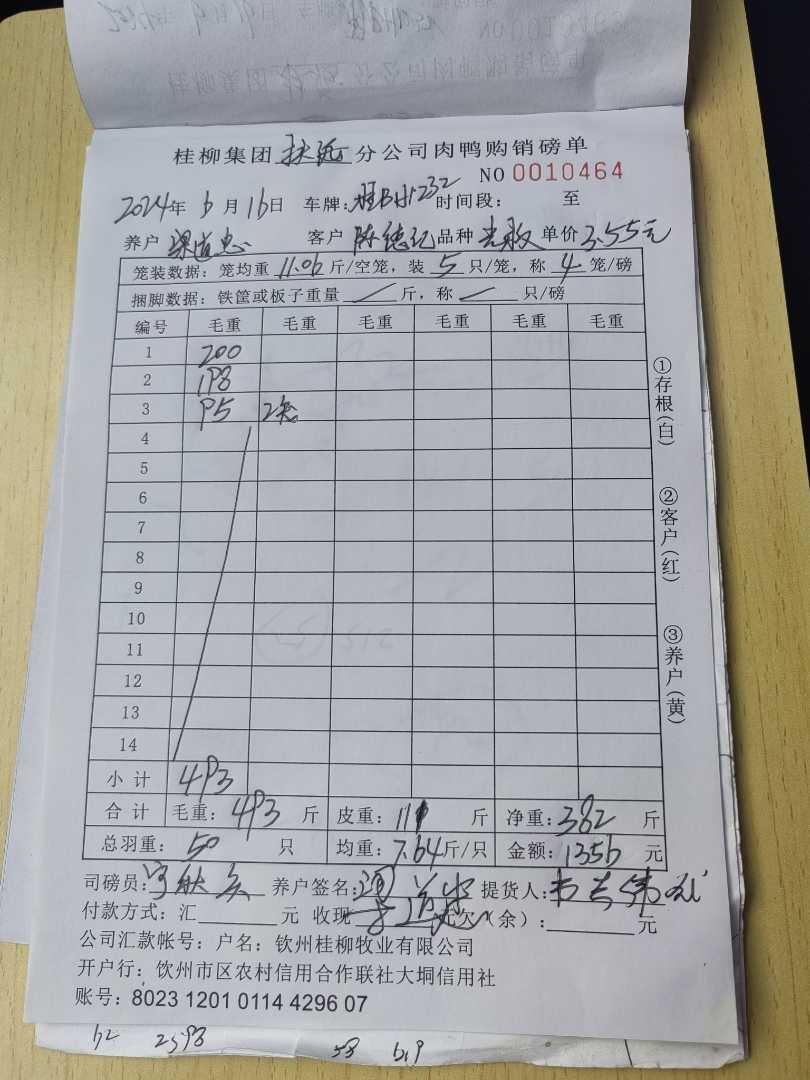 桂柳集团扶远分公司肉鸭购销磅单
NO 0010464
2024年6月16日 车牌:桂BH1232 时间段: 至
养户 梁道忠 客户 陈德记 品种 单价 3.55元
笼装数据:笼均重 11.06 斤/空笼,装 5 只/笼,称 4 笼/磅
捆脚数据:铁筐或板子重量 / 斤,称 / 只/磅
编号 毛重 毛重 毛重 毛重 毛重 毛重
1 200
2 198
3 95 2笼
4
5
6
7
8
9
10
11
12
13
14
小计 493
合计 毛重:493 斤 皮重:111 斤 净重:382 斤
总羽重:50 只 均重:7.64斤/只 金额:1356 元
司磅员: 养户签名: 提货人:
付款方式:汇 元 收现 元欠(余): 元
公司汇款帐号:户名:钦州桂柳牧业有限公司
开户行:钦州市区农村信用合作联社大垌信用社
账号:8023 1201 0114 4296 07
①存根(白)
②客户(红)
③养户(黄)
62 2598 58 619